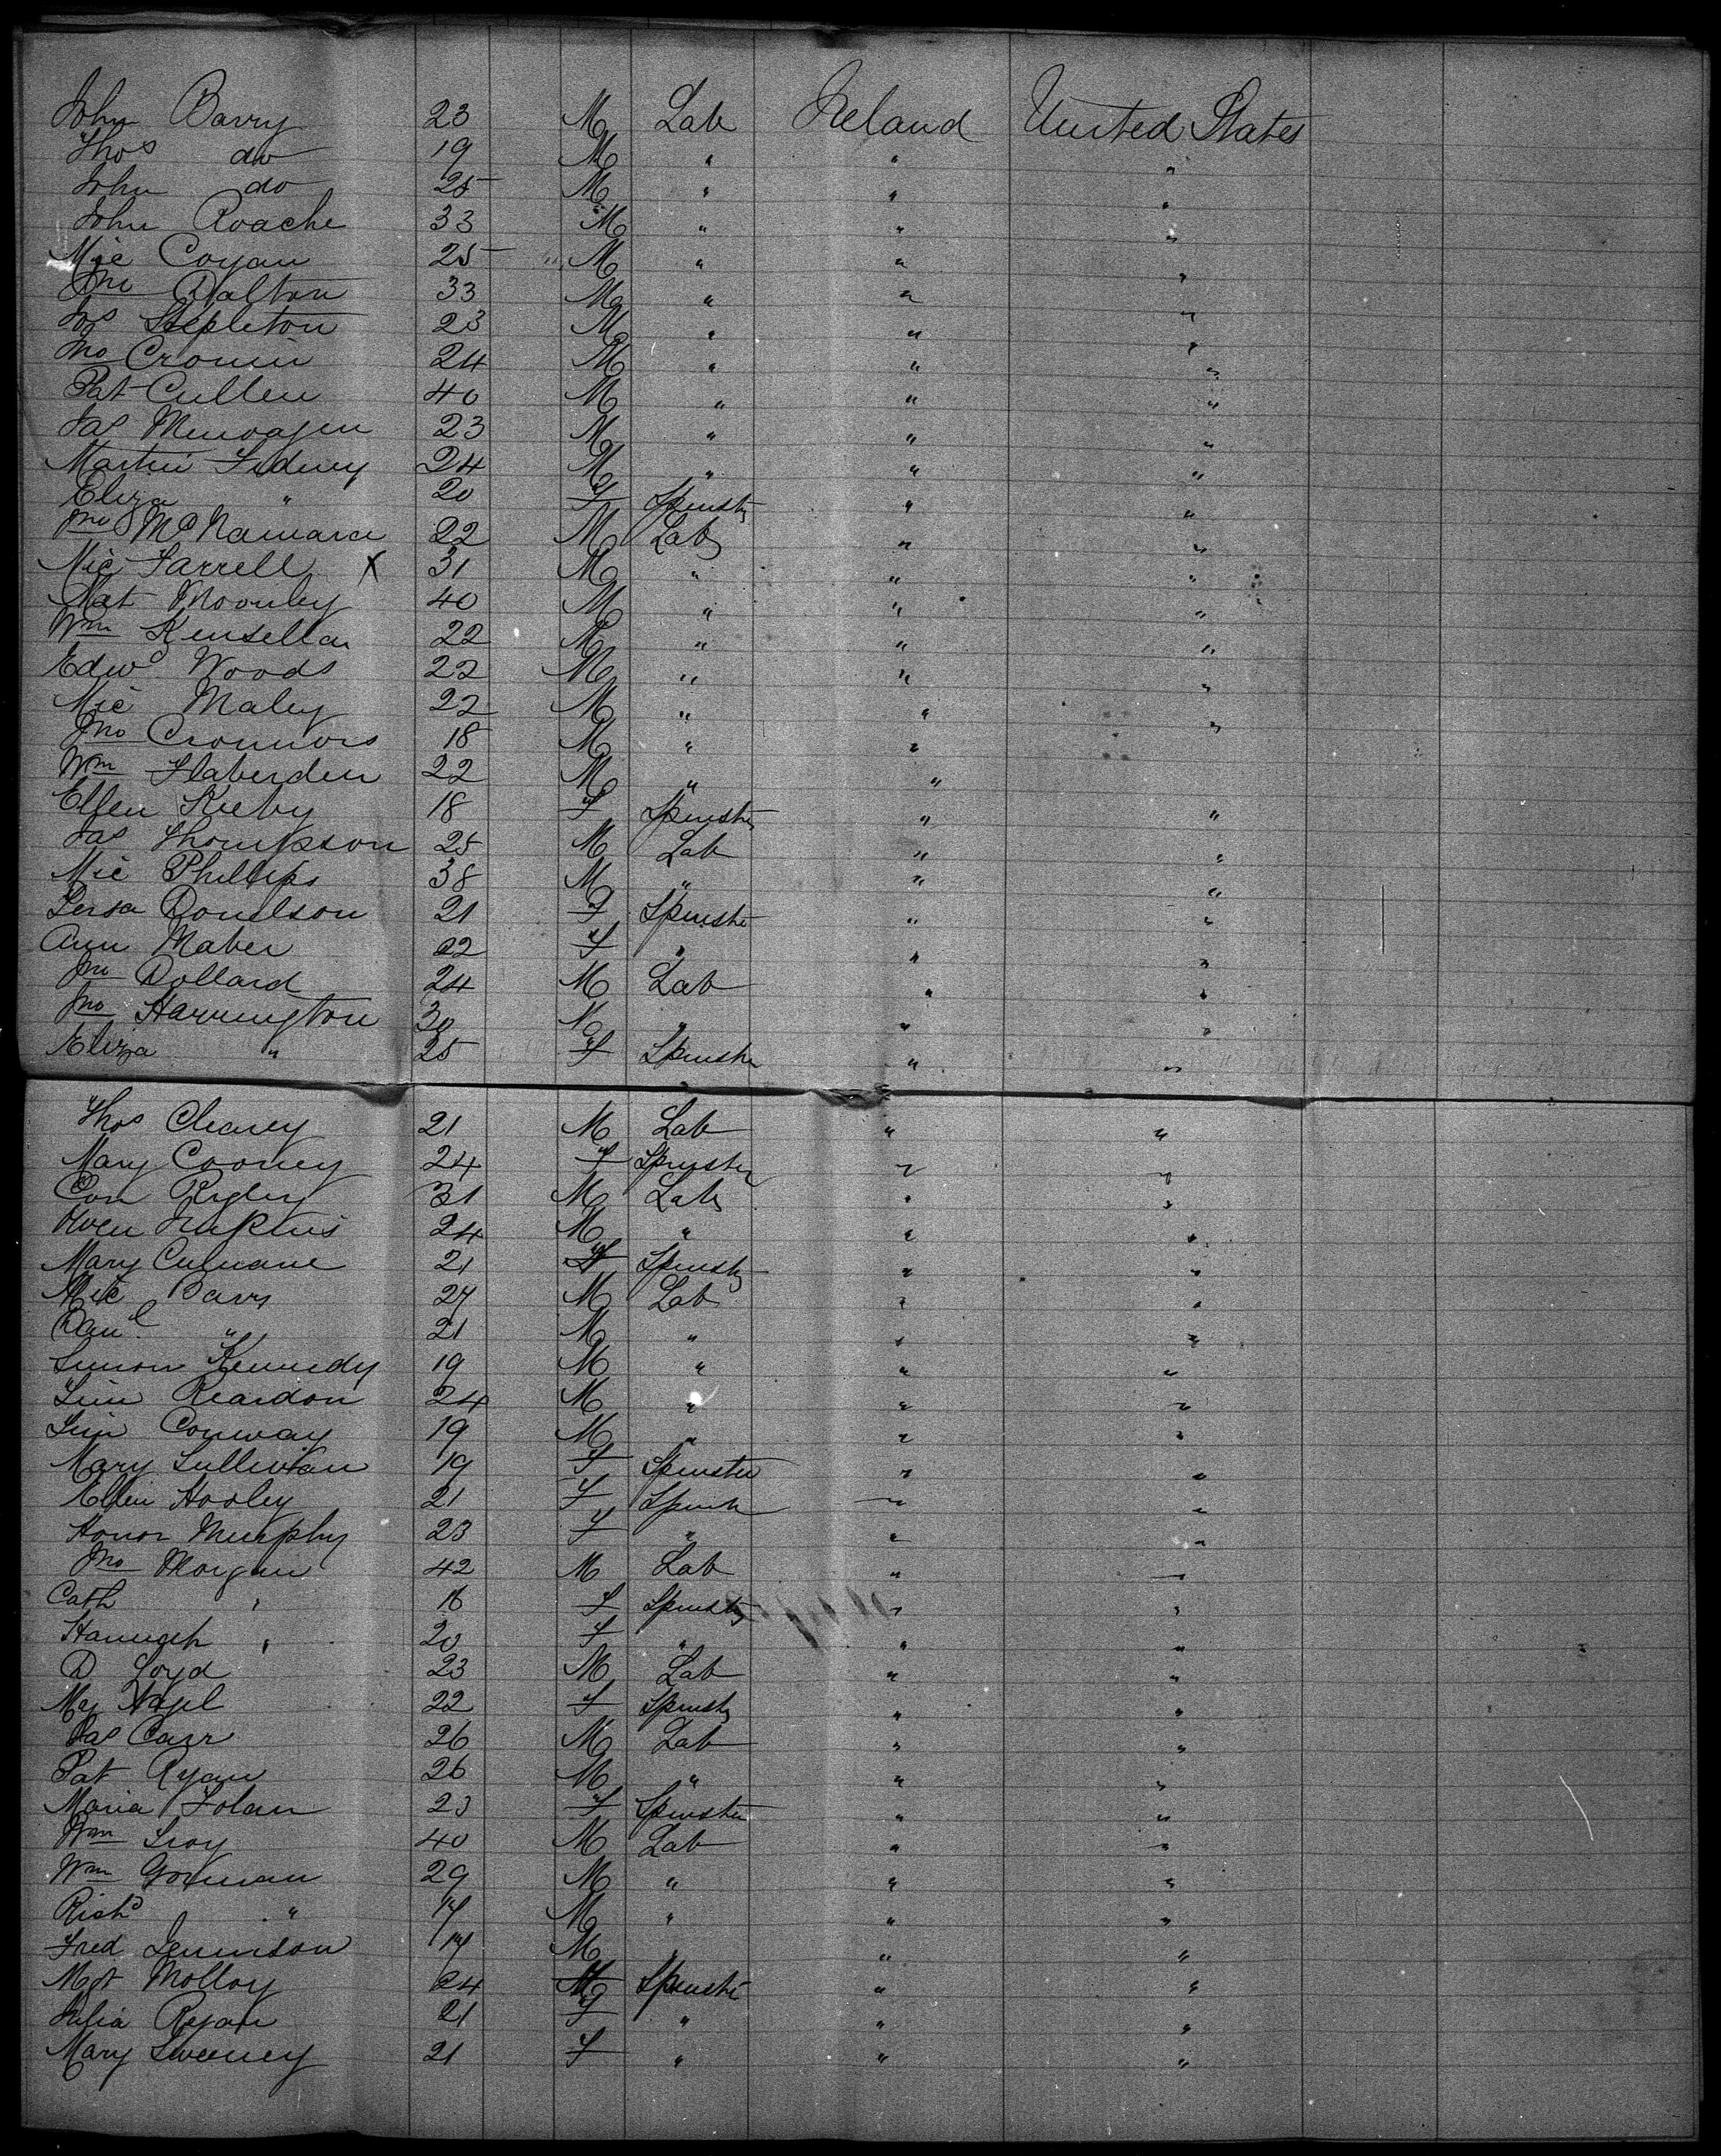 John Barry 23 M Lab Ireland United States
Thos do 19 M " " "
John do 25 M " " "
John Roache 33 M " " "
Mic Coyan 25 M " " "
Jno Dalton 33 M " " "
Jos Stepleton 23 M " " "
Jno Cronin 24 M " " "
Pat Cullen 40 M " " "
Jas 23 M " " "
Martin 24 M " " "
Eliza " 20 F Spinstr " "
Jno McNamara 22 M Lab " "
Mic Farrell X 31 M " " "
Mat Moonley 40 M " " "
Wm Kensella 22 M " " "
Edwd Woods 22 M " " "
Mic Maley 22 M " " "
Jno Cronnors 18 M " " "
Wm 22 M " " "
Ellen Kirby 18 F Spinstr " "
Jas Thompson 25 M Lab " "
Mic Phillips 38 M " " "
Donelson 21 F Spinstr " "
Ann Maher 22 F " " "
Jno Dollard 24 M Lab " "
Jno Harrington 30 M " " "
Eliza " 25 F Spinstr " "
Thos Cleary 21 M Lab " "
Mary Cooney 24 F Spinster " "
Con 31 M Lab " "
Owen 24 M " " "
Mary Culnane 21 F Spinstr " "
Mic 27 M Lab " "
Danl " 21 M " " "
Simon Kennedy 19 M " " "
Tim Reardon 24 M " " "
Tim Conway 19 M " " "
Mary Sullivan 19 F Spinster " "
Ellen Hooley 21 F Spinstr " "
Honor Murphy 23 F " " "
Jno Morgan 42 M Lab " "
Cath " 16 F Spinstr " "
Hannah " 20 F " " "
D Loyd 23 M Lab " "
22 F Spinstr " "
Jas Carr 26 M Lab " "
Pat Ryan 26 M " " "
Maria Folan 23 F Spinster " "
Wm 40 M Lab " "
Wm Gorman 29 M " " "
Richd " M " " "
Fred Jennison M " " "
Mgt Molloy 24 Spinstr " "
Julia Ryan 21 F " " "
Mary Sweeney 21 F " " "